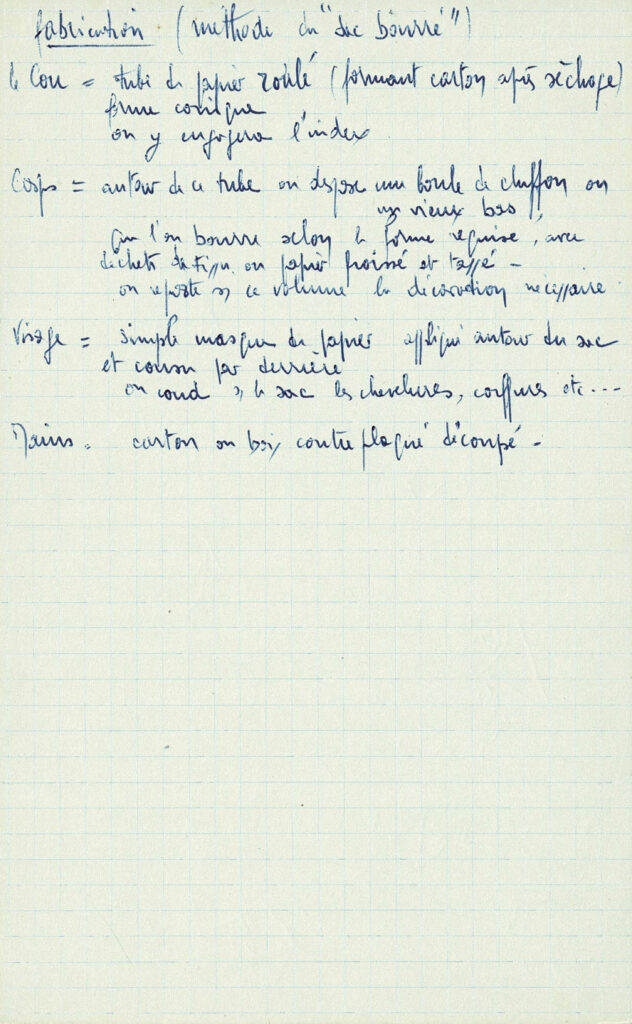 fabrication (méthode du "sac bourré")
le Cou = tube de papier roulé (formant carton après séchage)
forme conique
on y engagera l'index.
Corps = autour de ce tube on dispose une boule de chiffon ou
un vieux bas
que l'on bourre selon la forme requise, avec
déchets de tissu ou papier froissé et tassé -
on reporte s/ ce volume la décoration nécessaire
Visage = simple masque de papier appliqué autour du sac
et cousu par derrière
on coud s/ le sac les chevelures, coiffures etc...
Mains = carton ou bois contreplaqué découpé -